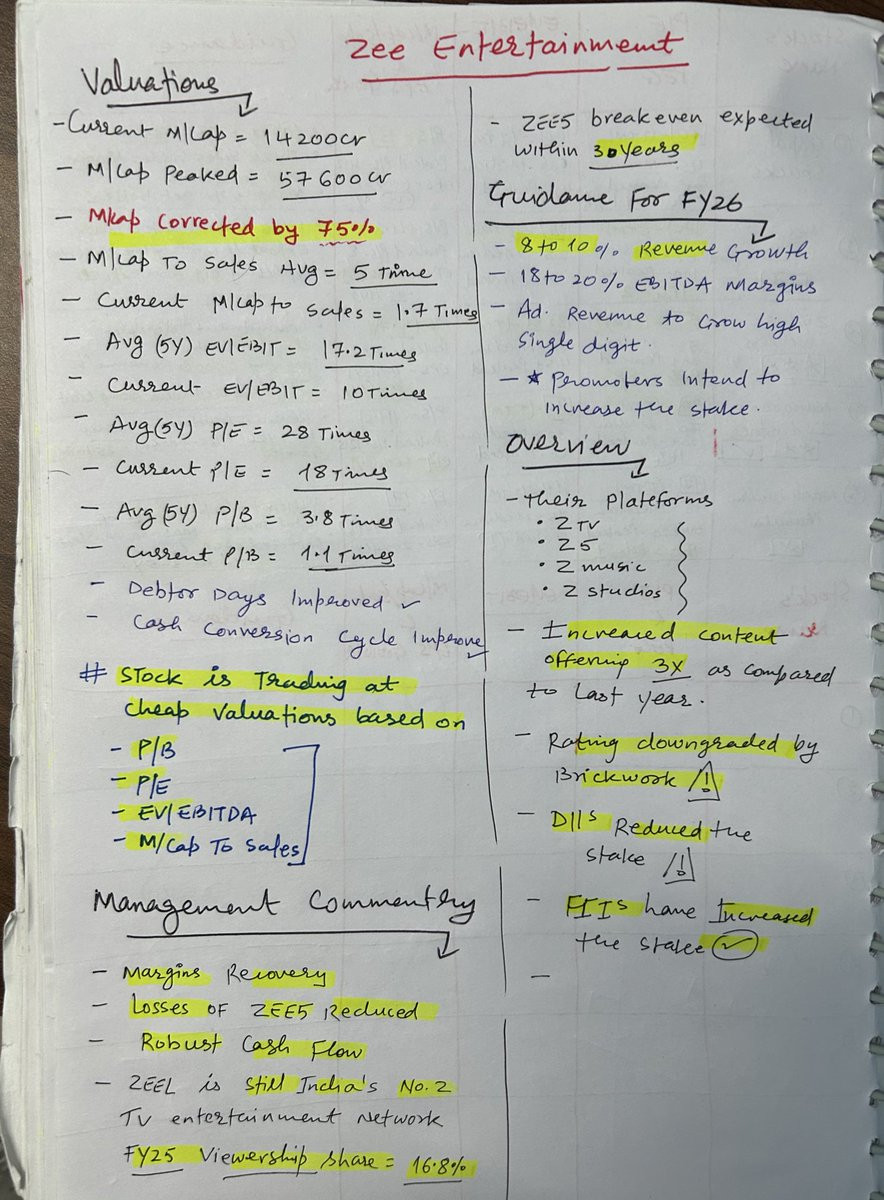 Zee Entertainment
Valuations
- Current M/Cap = 14200cr
- M/Cap Peaked = 57600cr
- Mcap Corrected by 75%
- M/Cap To Sales Avg = 5 Time
- Current M/Cap to Sales = 1.7 Times
- Avg (5Y) EV/EBIT = 17.2 Times
- Current EV/EBIT = 10 Times
- Avg (5Y) P/E = 28 Times
- Current P/E = 18 Times
- Avg (5Y) P/B = 3.8 Times
- Current P/B = 1.1 Times
- Debtor Days Improved ✓
- Cash Conversion Cycle Improve ✓
# Stock is Trading at
cheap valuations based on
- P/B
- P/E
- EV/EBITDA
- M/Cap To Sales
Management Commentry
- Margins Recovery
- Losses OF ZEE5 Reduced
- Robust Cash Flow
- ZEEL is still India's No. 2
TV entertainment network
FY25 Viewership share = 16.8%
- ZEE5 breakeven expected
within 3 years
Guidance For FY26
- 8 to 10% Revenue Growth
- 18 to 20% EBITDA Margins
- Ad. Revenue to Grow high
Single digit.
- * Promoters Intend to
increase the stake.
Overview
- their Plateforms
• Z TV
• Z5
• Z music
• Z studios
- Increased content
offering 3X as compared
to last year.
- Rating downgraded by
Brickwork ⚠
- DIIs Reduced the
stake ⚠
- FIIs have Increased
the stake ✓
-